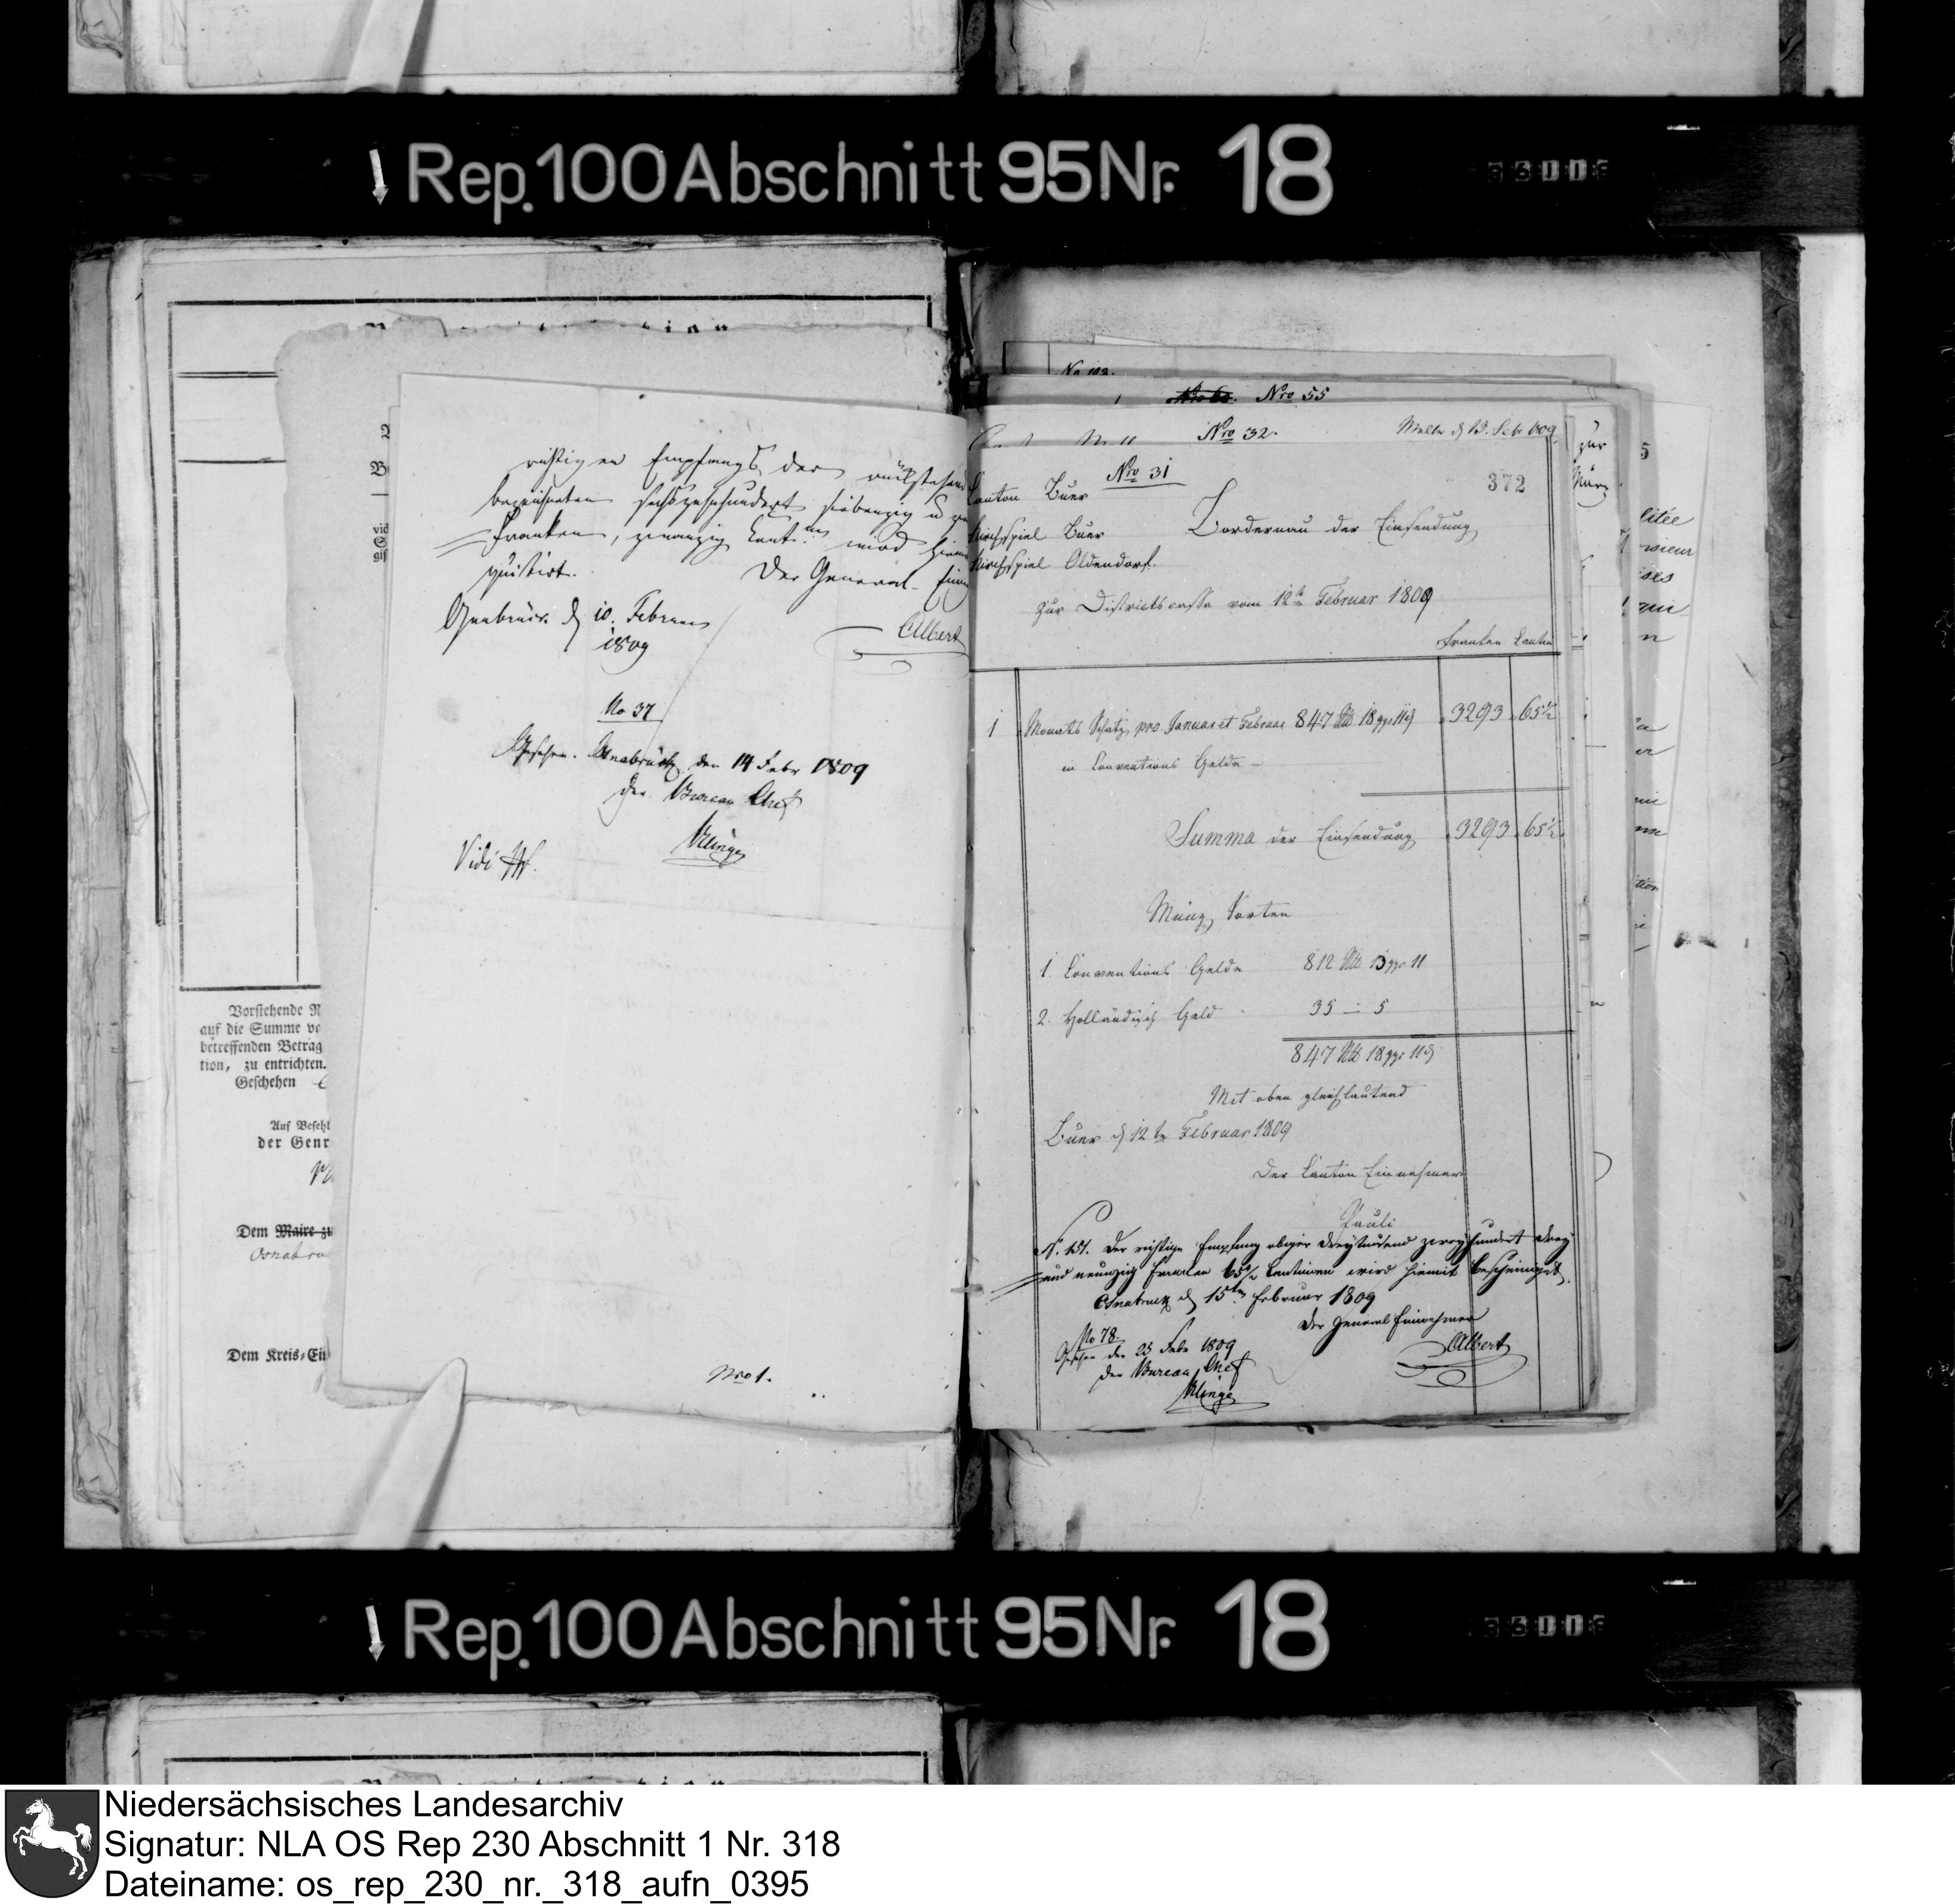 Rep. 100 Abschnitt 95 Nr. 18
richtigen Empfangs der rückstehend
bezeichneten sechszehnhundert siebenzig u
Franken, zwanzig Cent. wird
quittirt.
Der General-
Osnabrück d 10. Februar
1809
Albert
No 37
Gesehen. Osnabrück den 14 Febr 1809
Der Bureau Chef
Klinge
Vidi
Nro 1.
Vorstehende
auf die Summe
betreffenden Betrag
tion, zu entrichten.
Geschehen
Auf Befehl
der
Dem Maire
Dem Kreis-
No 102.
Nro 55
Nro 32.
Melle d 13. Febr 809
Nro 31
372
Canton Buer
Kirchspiel Buer
Kirchspiel Oldendorf.
Bordereau der Einsendung
zur Districtscasse vom 12ten Februar 1809
Franken Centim
1 Monats Schatz pro Januar et Februar 847 Rtl 18 ggr 11 d 3293 65 1/2
in Conventions Gelde
Summa der Einsendung 3293 65 1/2
Münz Sorten
1. Conventions Gelde 812 Rtl 13 ggr 11
2. Holländisch Geld 35 – 5
847 Rtl 18 ggr 11 d
Mit oben gleichlautend
Buer d 12 ten Februar 1809
Der Canton Einnehmer
Pauli
N. 151. Der richtige Empfang obiger dreytausend zweyhundert drey
und neunzig Franken 65 1/2 Centimen wird hiemit bescheiniget.
Osnabruck d 15ten Februar 1809
Der General Einnehmer
Albert
No 78.
Gesehen den 25 Febr 1809
Der Bureau Chef
Klinge
Rep. 100 Abschnitt 95 Nr. 18
Niedersächsisches Landesarchiv
Signatur: NLA OS Rep 230 Abschnitt 1 Nr. 318
Dateiname: os_rep_230_nr._318_aufn_0395